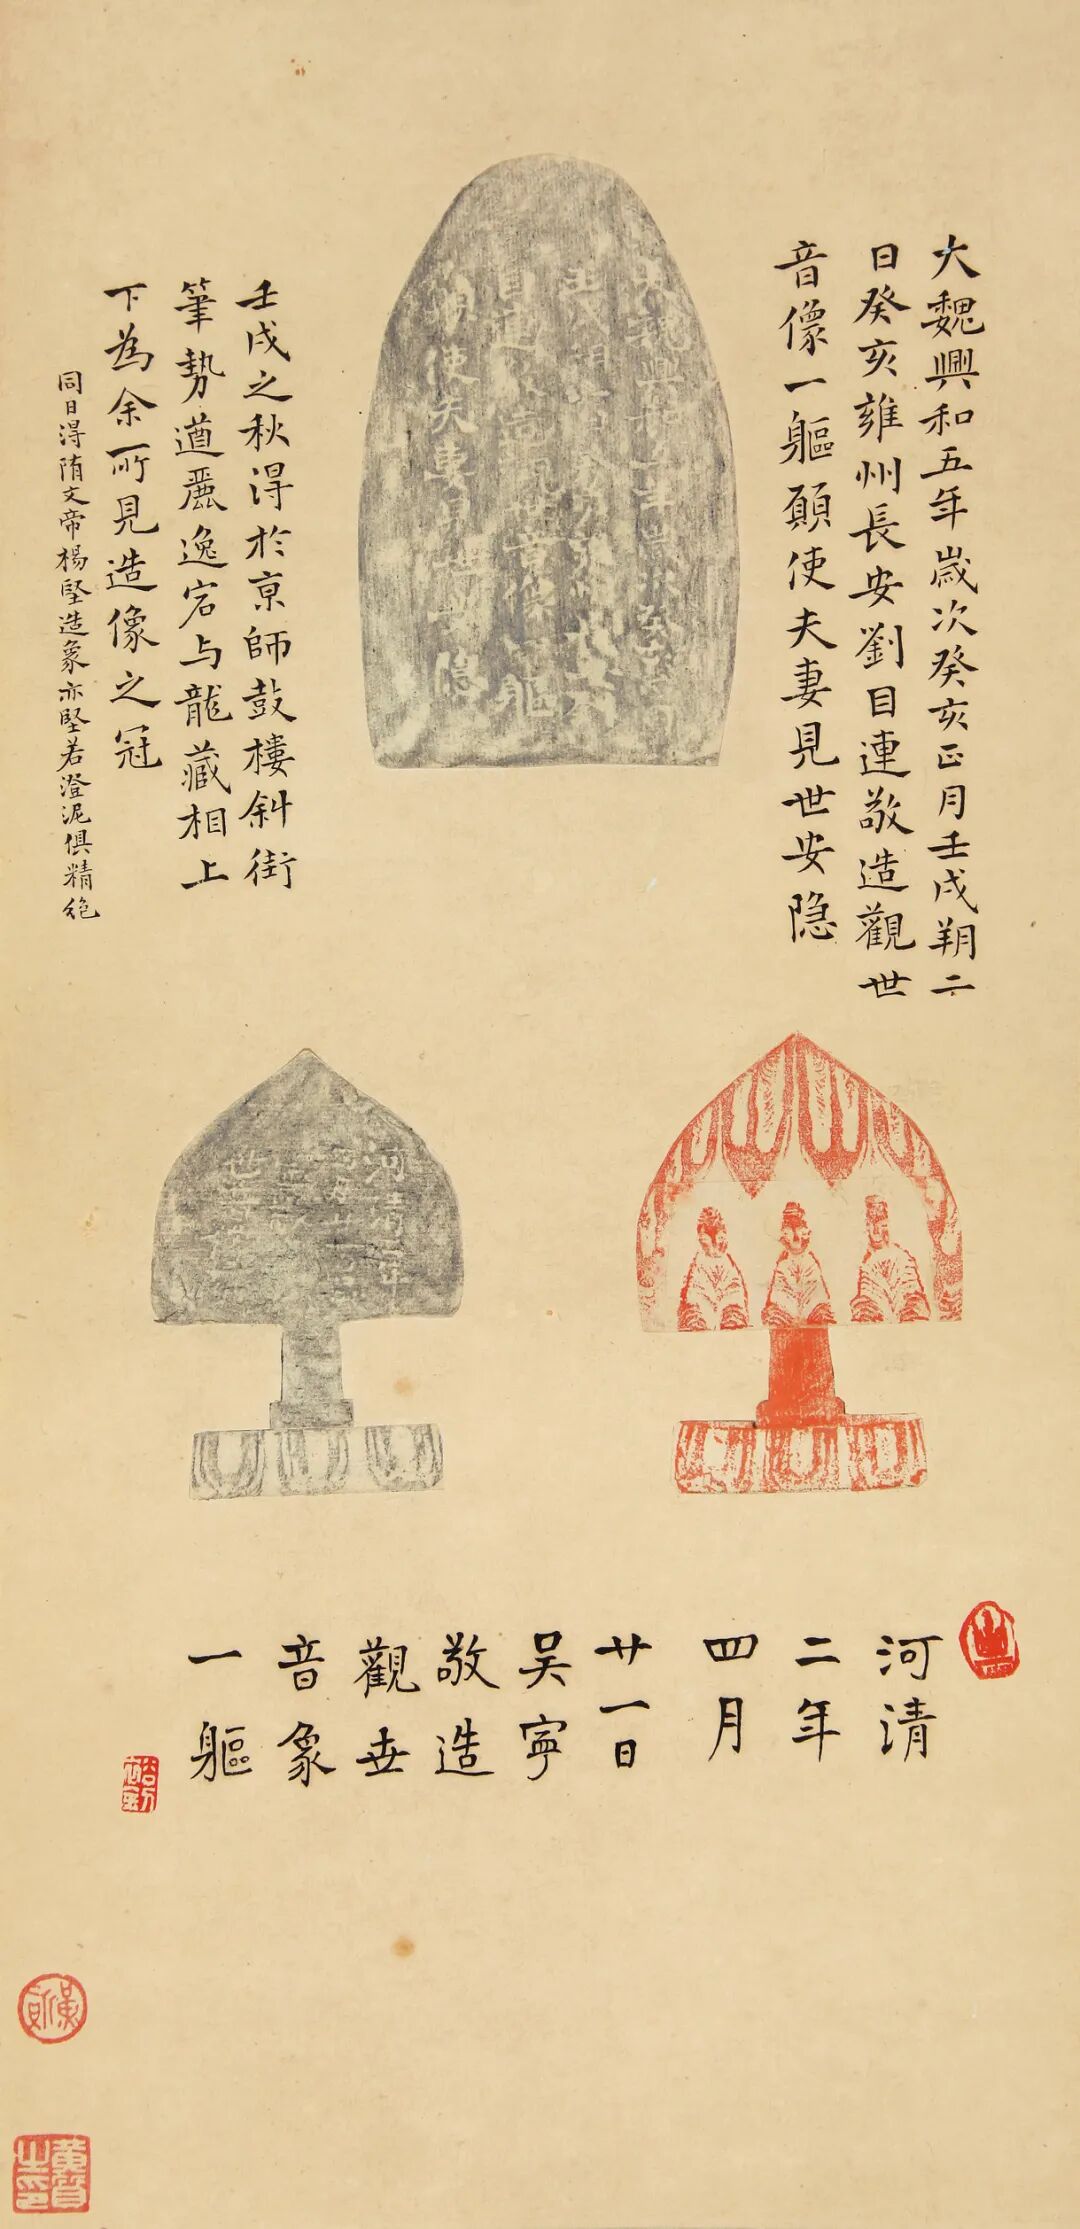 大魏興和五年歲次癸亥正月壬戌朔二
日癸亥雍州長安劉目連敬造觀世
音像一軀願使夫妻見世安隐
壬戌之秋淂於京師鼓樓斜街
筆勢遒麗逸宕与龍藏相上
下為余所見造像之冠
同日淂隋文帝楊堅造象亦堅若澄泥俱精绝
河清
二年
四月
廿一日
吴寧
敬造
觀世
音象
一軀
黄質之印